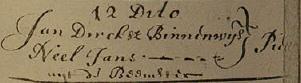 12 Dito
Jan Dirckst Binnenwijst
Neel Jans
uijt de Beemster